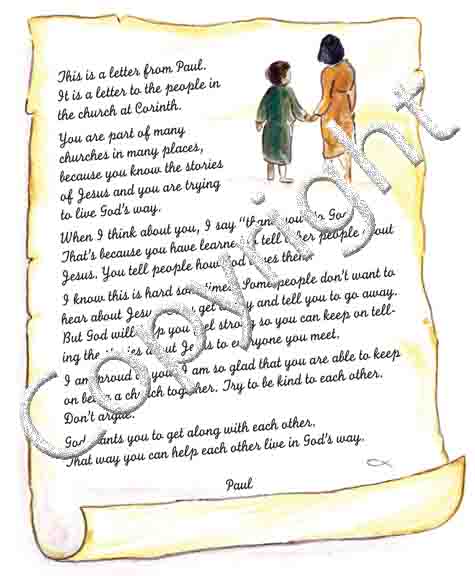 This is a letter from Paul.
It is a letter to the people in
the church at Corinth.
You are part of many
churches in many places,
because you know the stories
of Jesus and you are trying
to live God's way.
When I think about you, I say "thank you" to God.
That's because you have learned to tell other people about
Jesus. You tell people how God loves them.
I know this is hard sometimes. Some people don't want to
hear about Jesus. get angry and tell you to go away.
But God will help you feel strong so you can keep on tell-
ing the stories about Jesus to everyone you meet.
I am proud of you. I am so glad that you are able to keep
on being a church together. Try to be kind to each other.
Don't argue.
God wants you to get along with each other.
That way you can help each other live in God's way.
Paul
Copyright